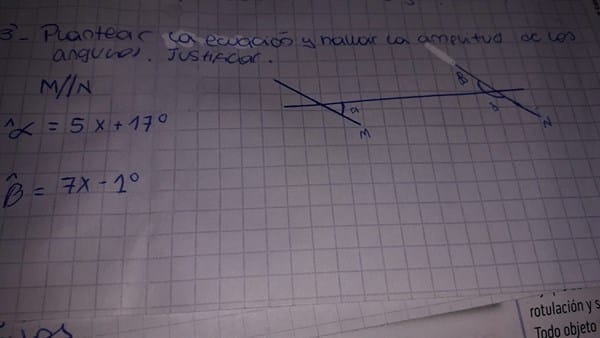 3- Plantear la ecuación y hallar la amplitud de los
ángulos. Justificar.
M//N
α̂ = 5x+17°
B̂ = 7x-1°
α
M
B
N
rotulación y s
Todo objeto